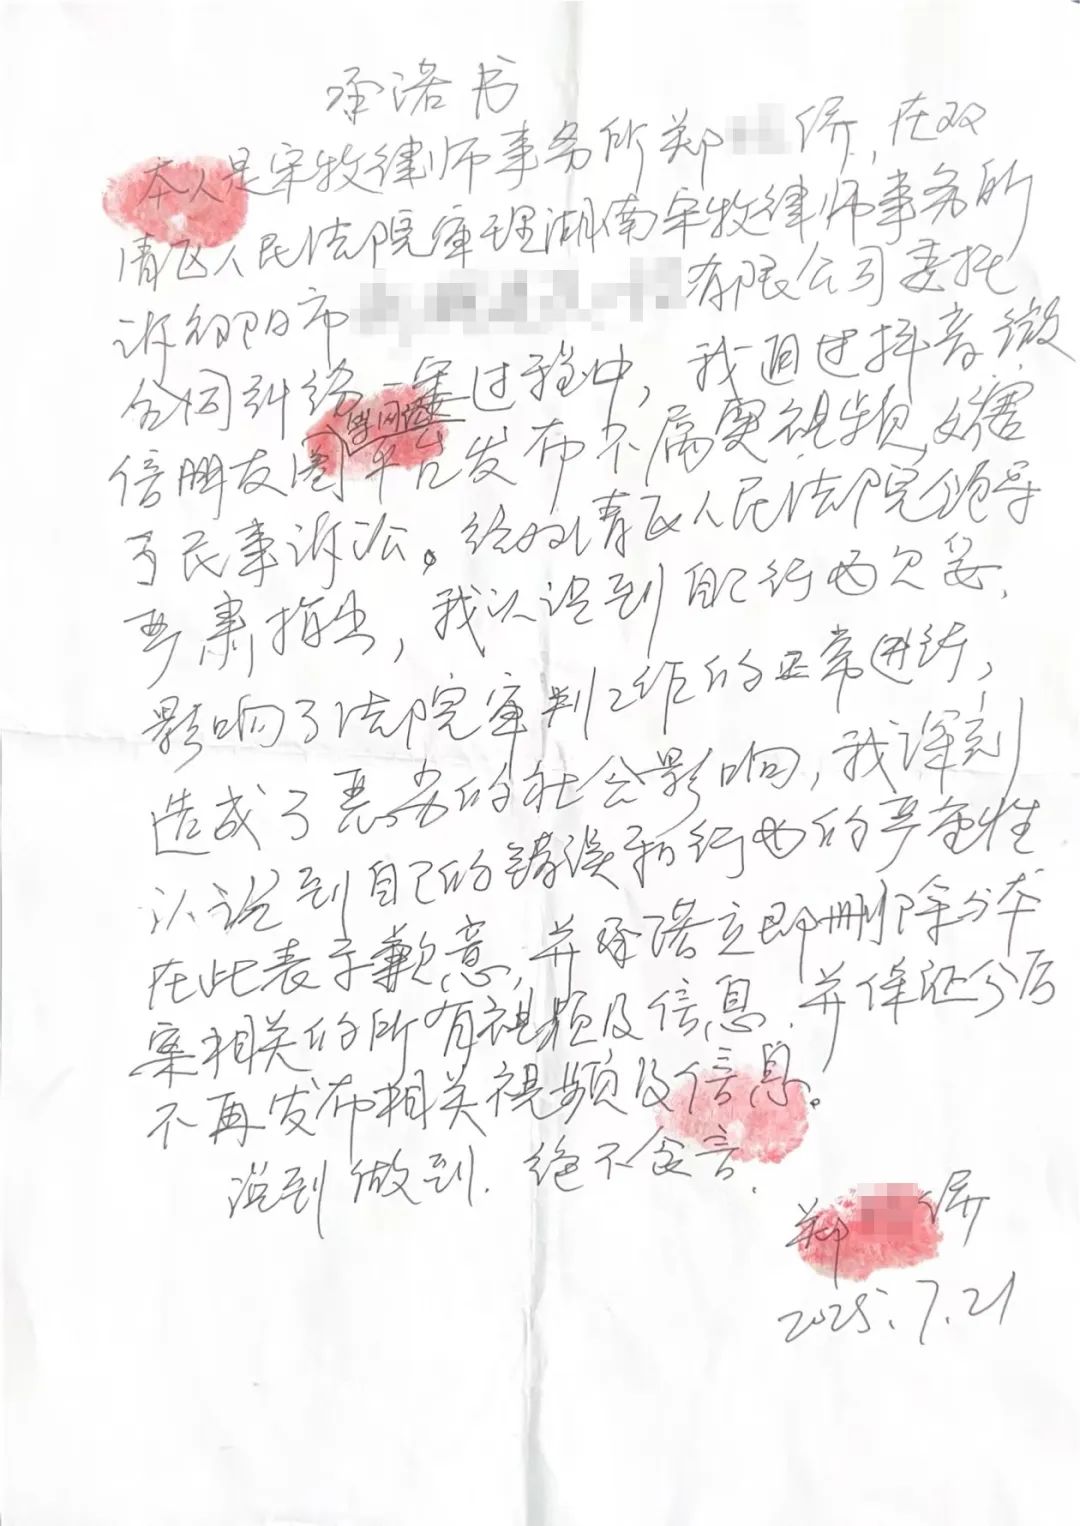 承诺书
本人是宋牧律师事务所郑 侨,在双
清区人民法院审理湖南宋牧律师事务所
诉邵阳市 有限公司委托
合同纠纷一案过程中,我通过抖音、微
信朋友圈 等网络 平台发布不属实视频,妨害
了民事诉讼。经双清区人民法院领导
严肃指出,我认识到自己行为欠妥,
影响了法院审判工作的正常进行,
造成了恶劣的社会影响,我深刻
认识到自己的错误和行为的严重性
在此表示歉意,并承诺立即删除与本
案相关的所有视频及信息.并保证今后
不再发布相关视频及信息。
说到做到.绝不食言.
郑 侨
2025.7.21